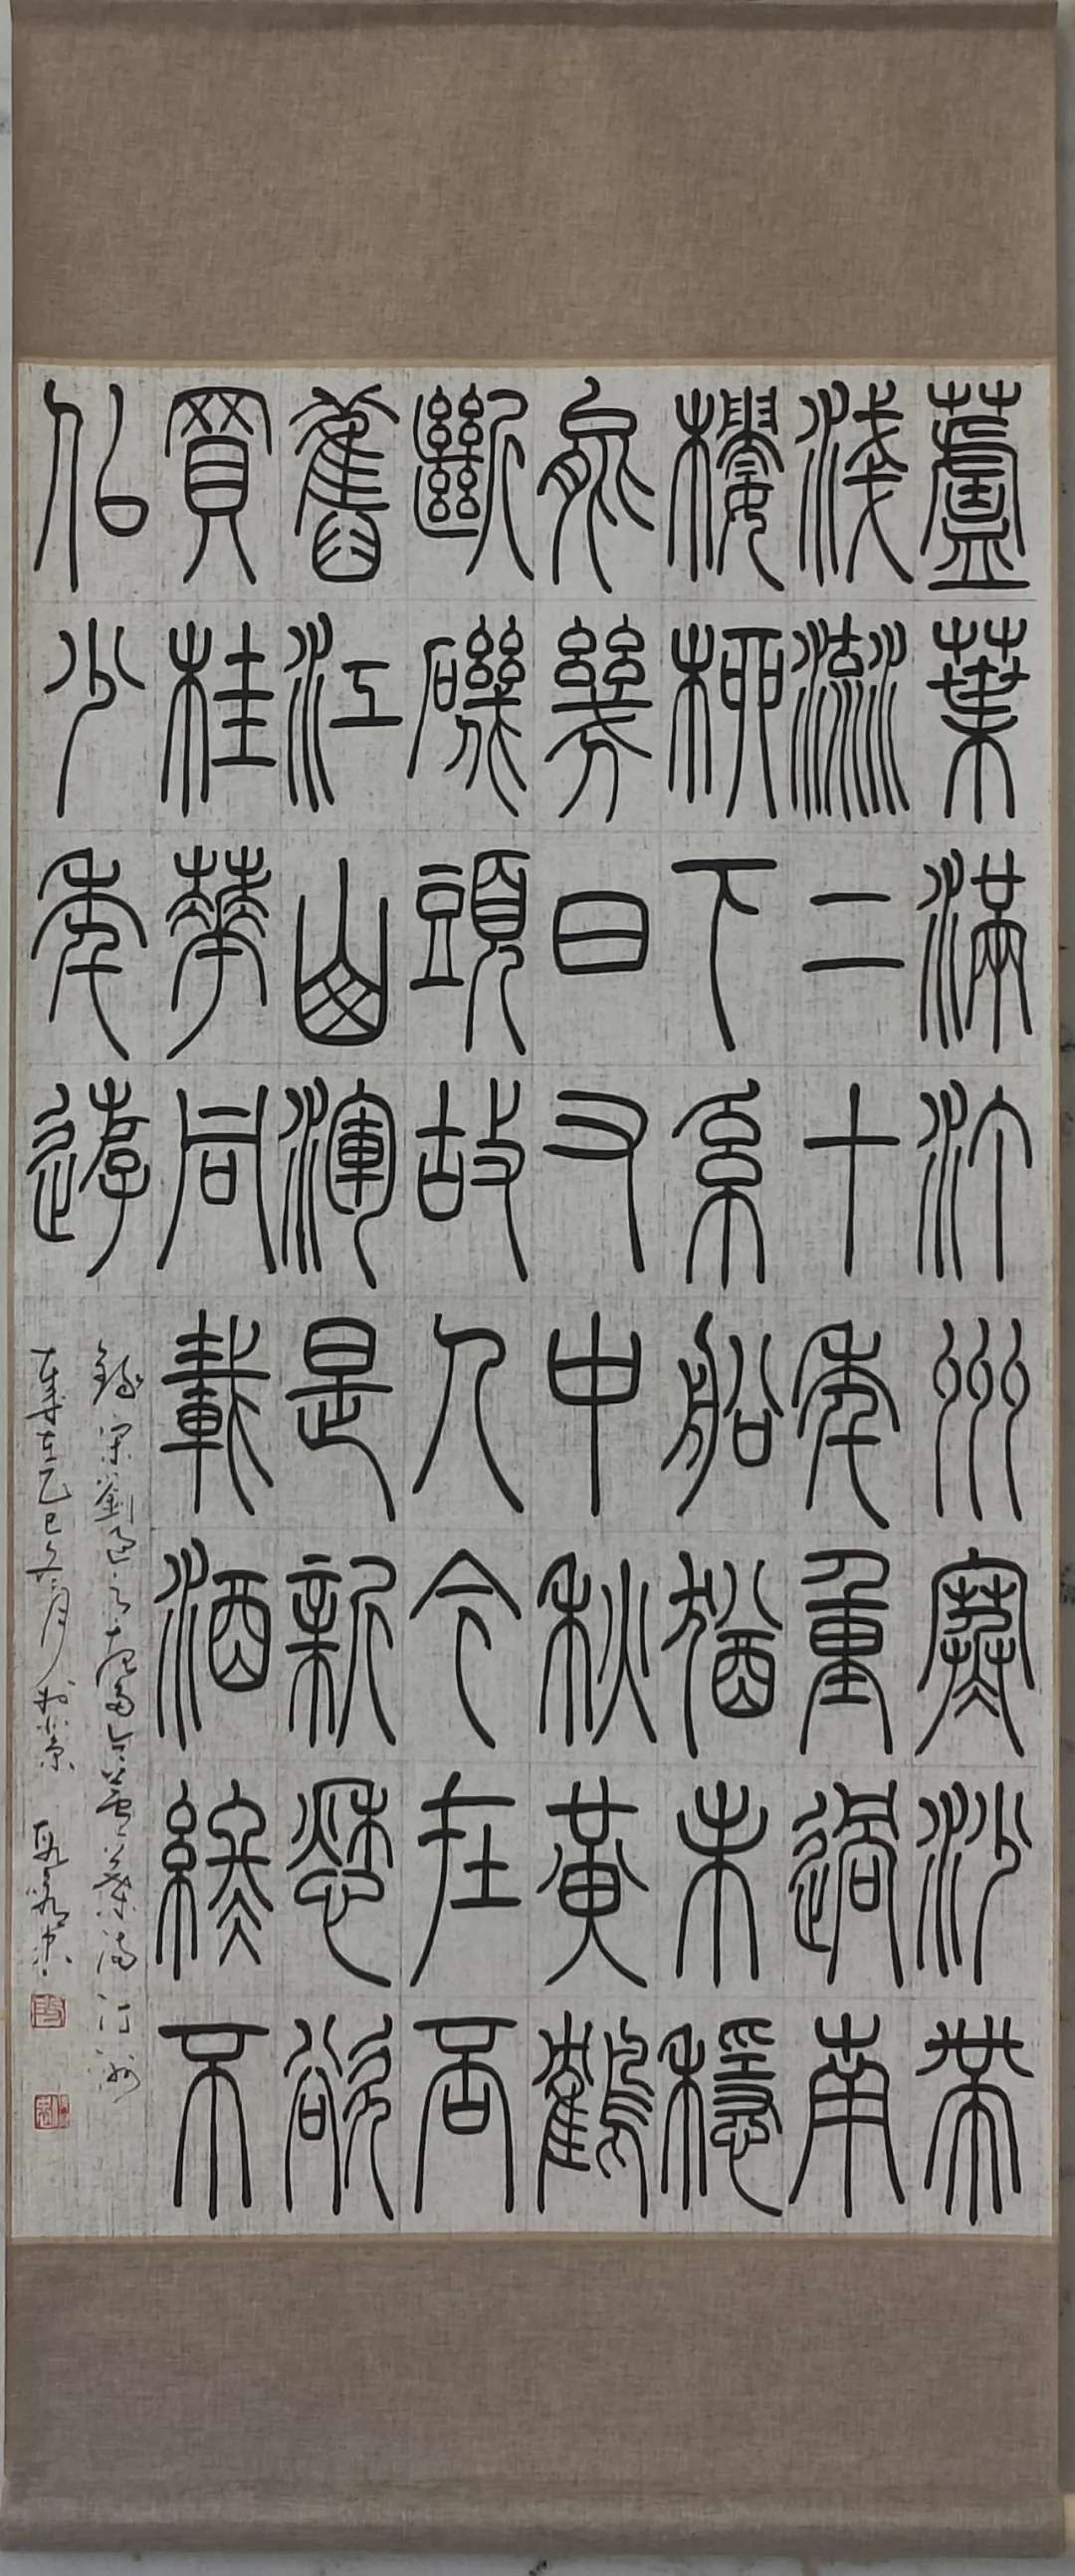 蘆葉滿汀州寒沙帶
淺流二十年重過南
樓柳下系船猶未穩
能幾日又中秋黃鶴
斷磯頭故人今在否
舊江山渾是新愁欲
買桂華同載酒終不
似少年遊
錄宋劉過之唐多令蘆葉滿汀洲
歲在乙巳冬月於北京